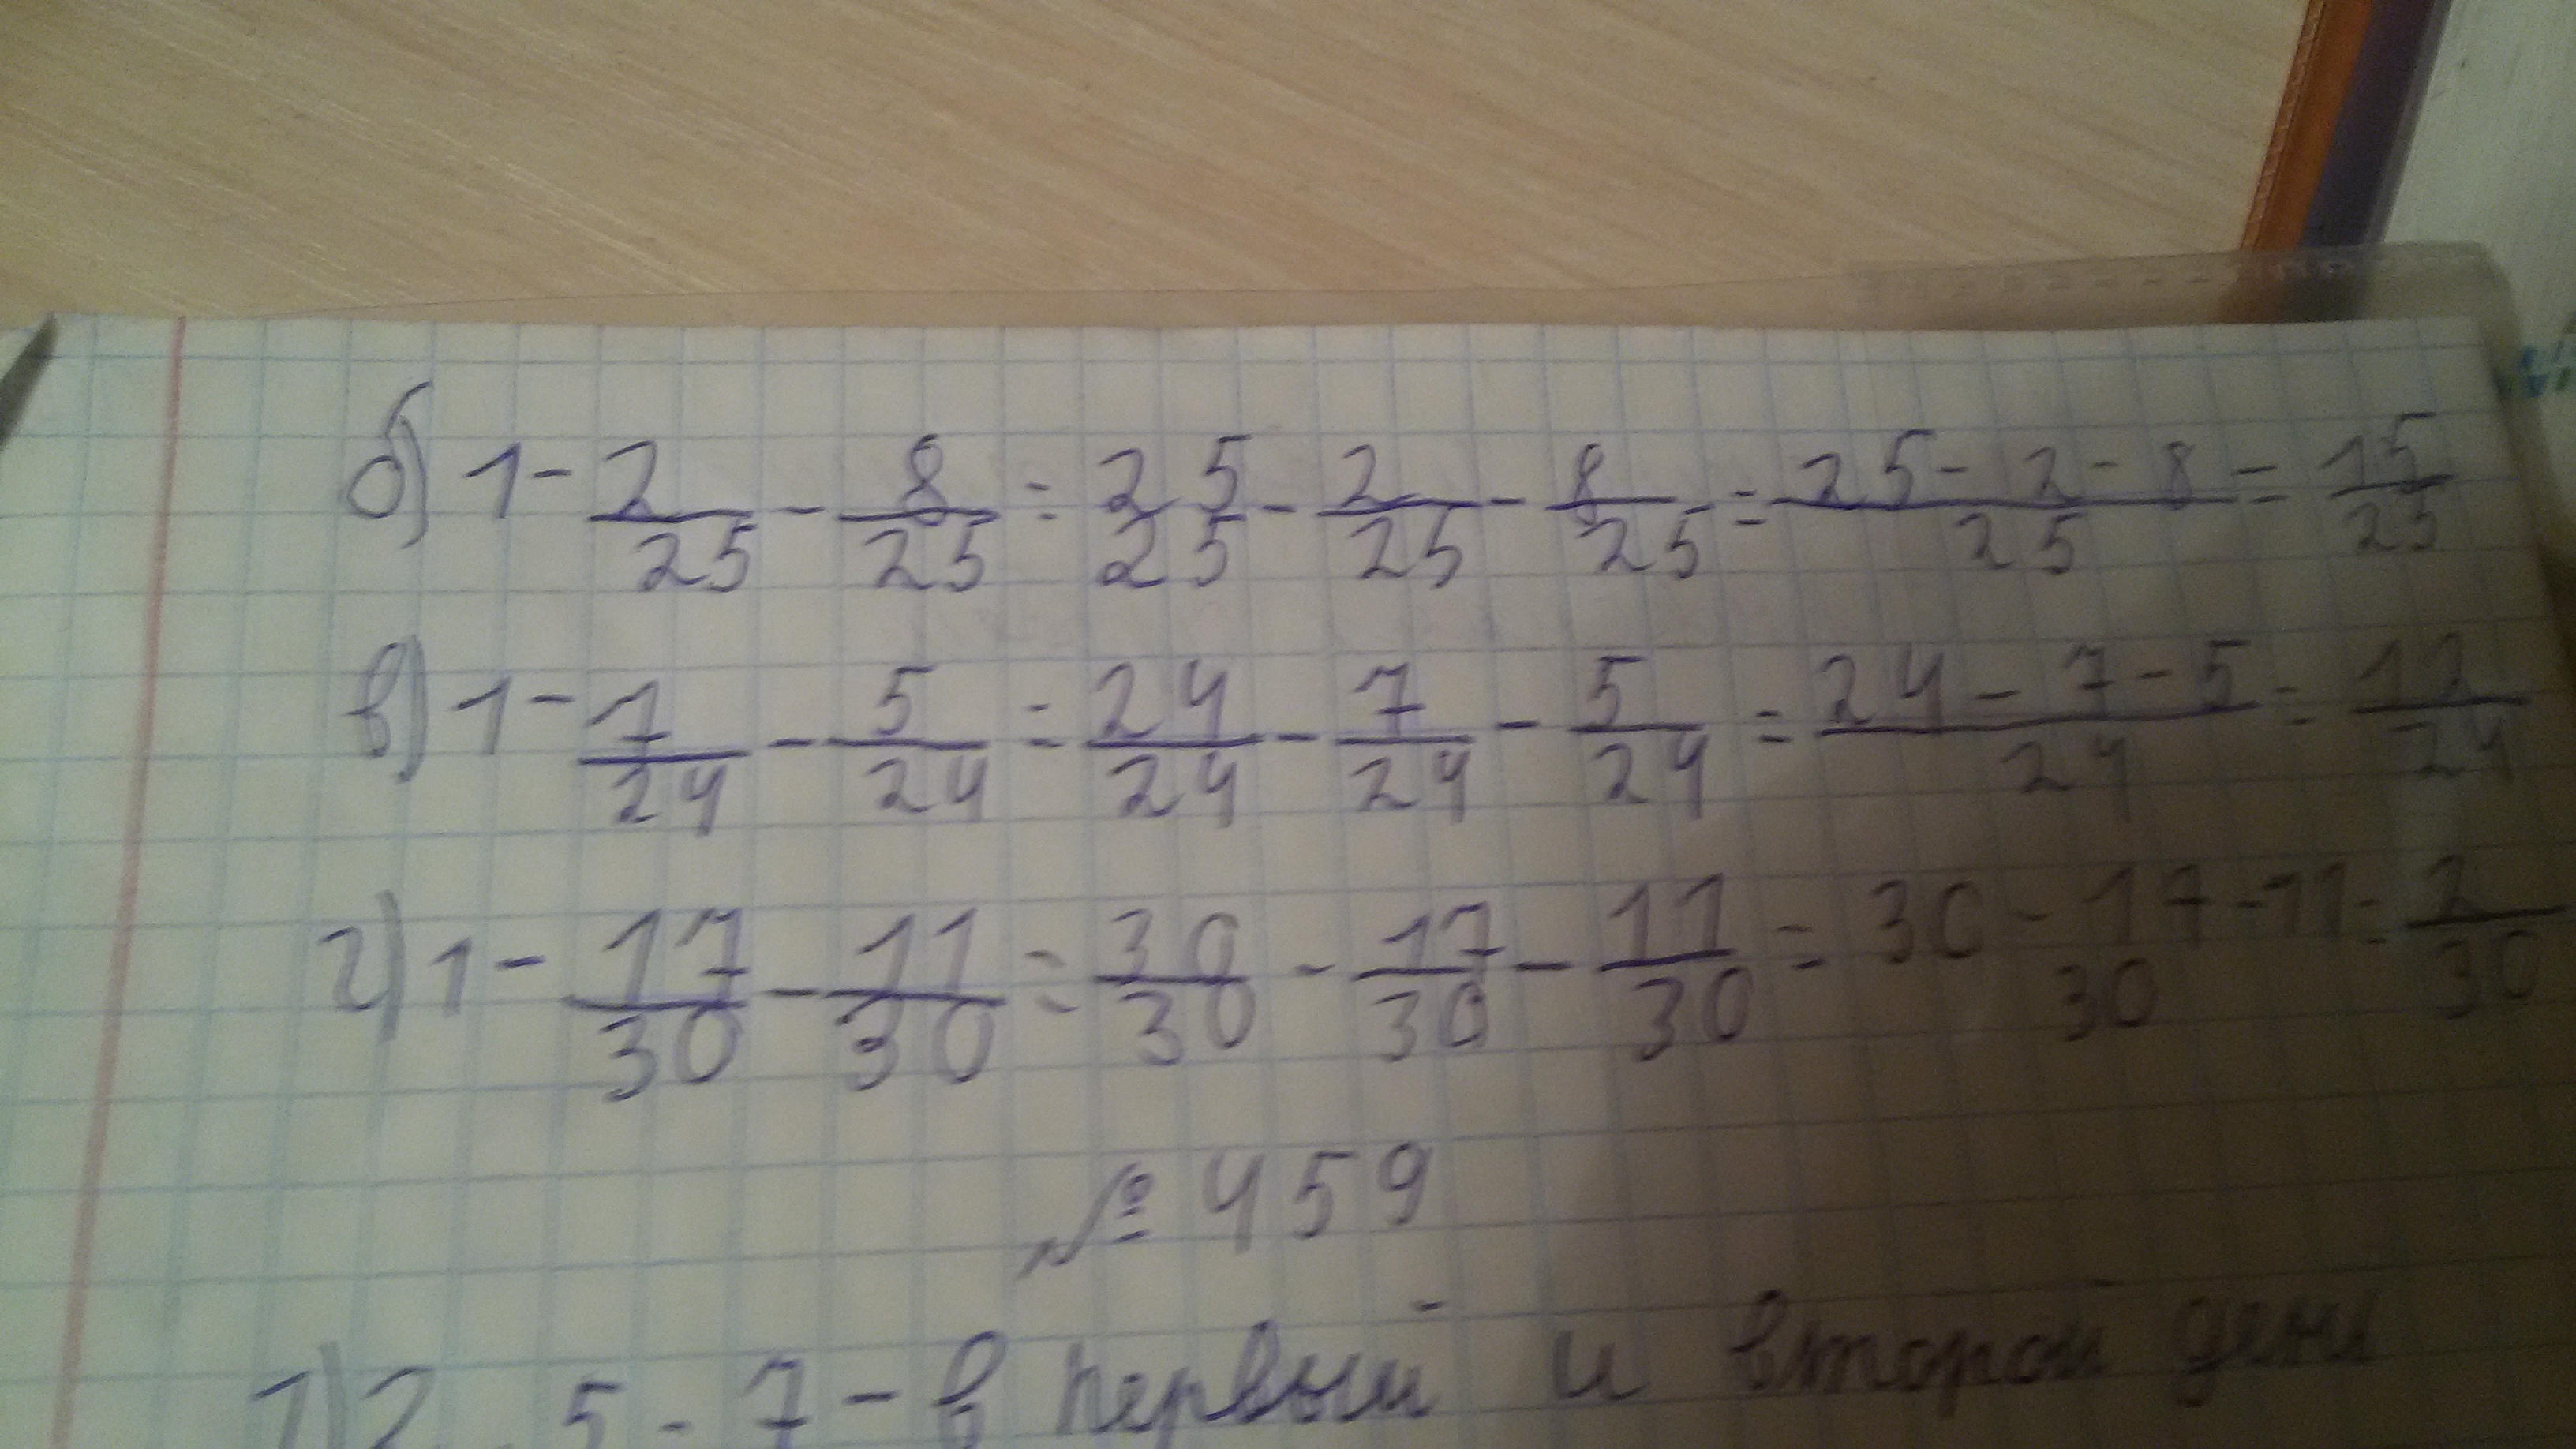 б) 1 - 2/25 - 8/25 = 25/25 - 2/25 - 8/25 = 25 - 2 - 8/25 = 15/25
в) 1 - 7/24 - 5/24 = 24/24 - 7/24 - 5/24 = 24 - 7 - 5/24 = 12/24
г) 1 - 17/30 - 11/30 = 30/30 - 17/30 - 11/30 = 30 - 17 - 11/30 = 2/30
№ 459
1) 2 5 - 7 - в первый и второй день